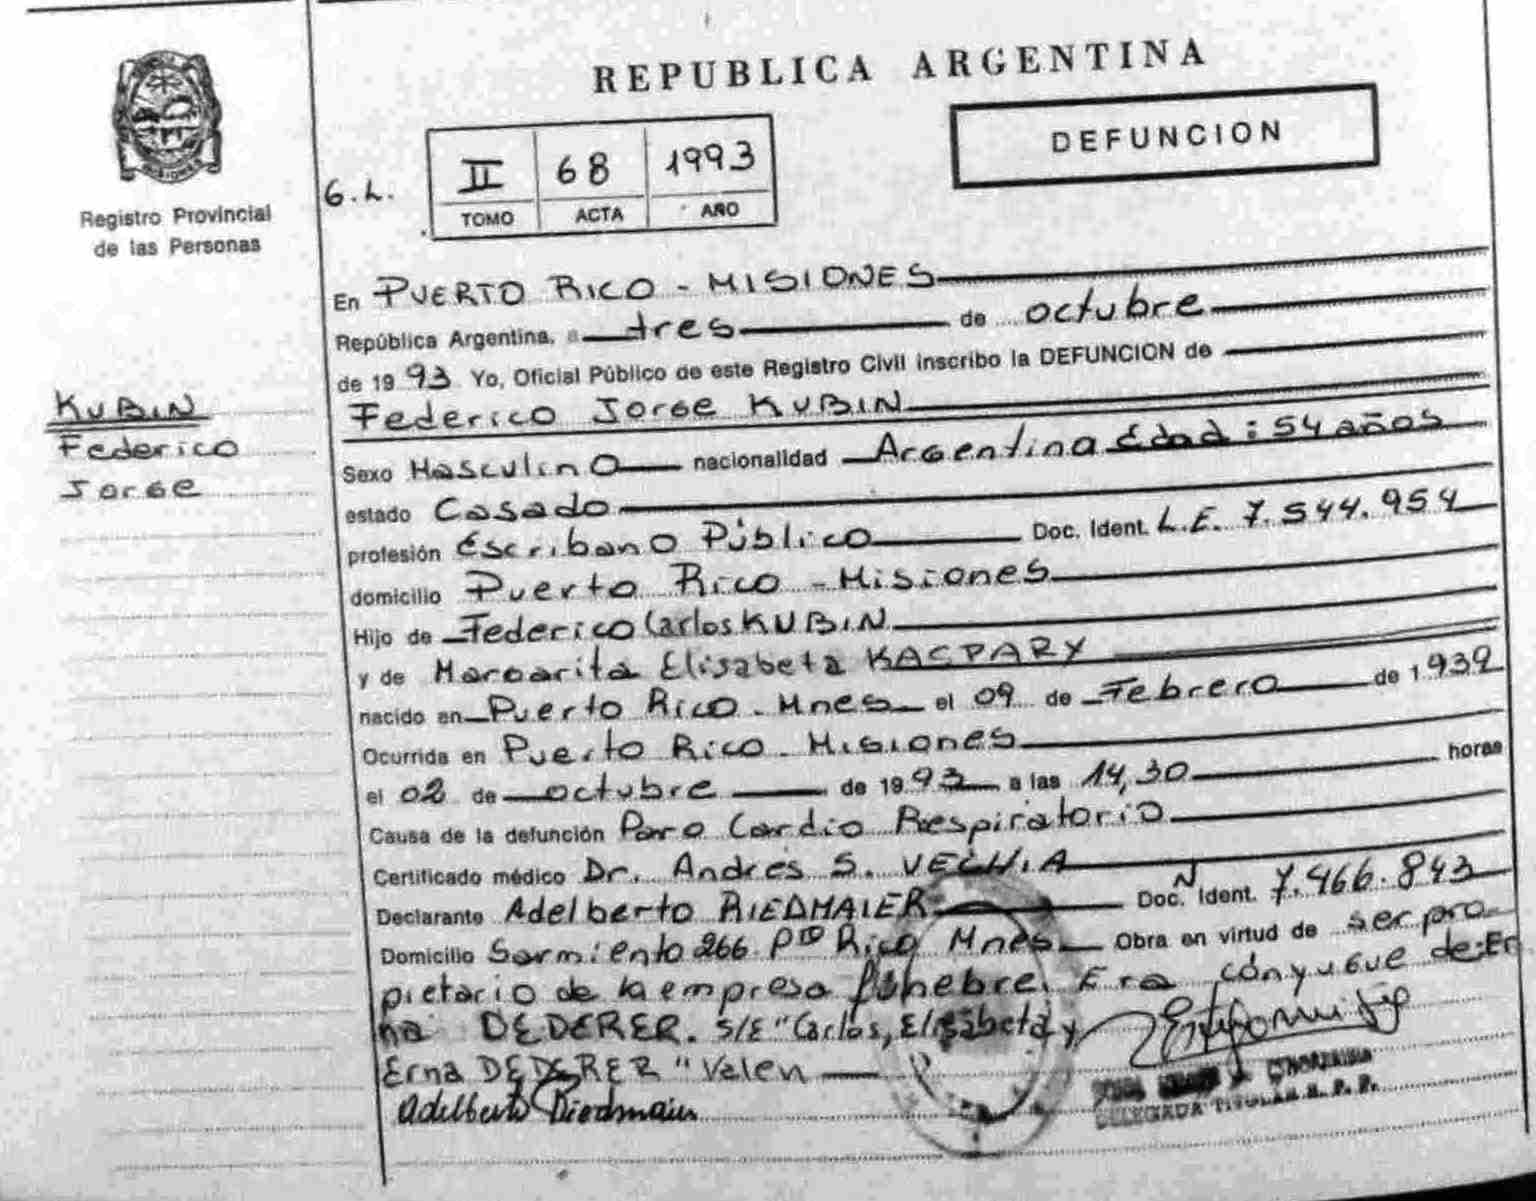 REPUBLICA ARGENTINA
DEFUNCION
G.L.
II 68 1993
TOMO ACTA AÑO
MISIONES
Registro Provincial
de las Personas
KUBIN
Federico
Jorge
En PUERTO RICO - MISIONES
República Argentina, a tres de octubre
de 1993 Yo, Oficial Público de este Registro Civil inscribo la DEFUNCION de
Federico Jorge KUBIN
Sexo Masculino nacionalidad Argentina Edad: 54 años
estado Casado
profesión Escribano Público Doc. Ident. L.E. 7.544.954
domicilio Puerto Rico - Misiones
Hijo de Federico Carlos KUBIN
y de Margarita Elisabeta KASPARY
nacido en Puerto Rico - Mnes el 09 de Febrero de 1939
Ocurrida en Puerto Rico - Misiones
el 02 de octubre de 1993 a las 14,30 horas
Causa de la defunción Paro Cardio Respiratorio
Certificado médico Dr. Andrés S. VECHIA
Declarante Adelberto RIEDMAIER Doc. Ident. N 7.466.843
Domicilio Sarmiento 266 Pto Rico Mnes Obra en virtud de ser pro-
pietario de la empresa fúnebre. Era cónyugue de Er
na DEDERER. S/E "Carlos, Elisabeta y
Erna DEDERER" Valen
Adelberto Riedmaier
DELEGADA TITULAR R. P. P.